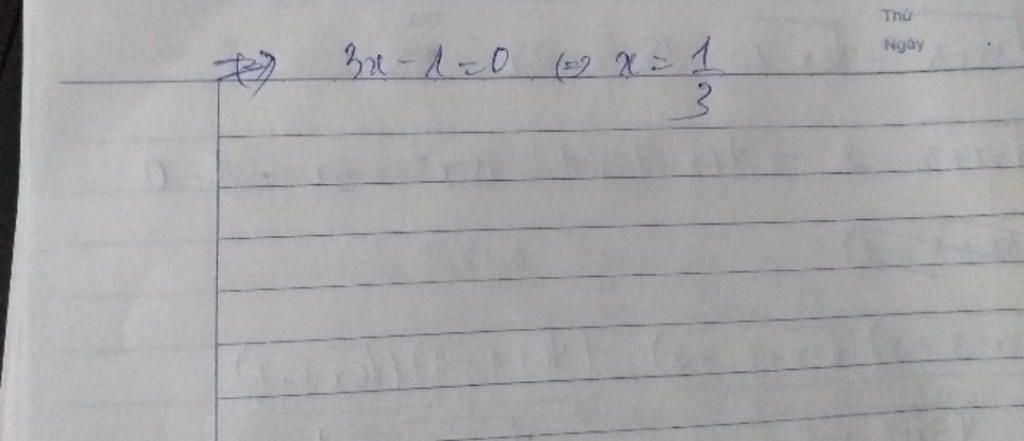 Thứ
Ngày
⇔ 3x - 1 = 0 ⇔ x = 1/3